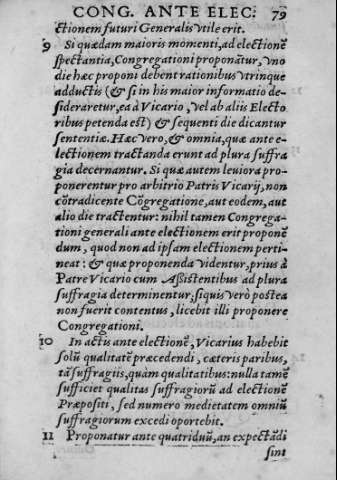 CONG. ANTE ELEC. 79
ctionem futuri Generalis vtile erit.
9 Si quædam maioris momenti, ad electionẽ
spectantia, Congregationi proponãtur, vno
die hæc proponi debent rationibus vtrinque
adductis (& si in his maior informatio de-
sideraretur, ea à Vicario, vel ab aliis Electo
ribus petenda est) & sequenti die dicantur
sententiæ. Hæc vero, & omnia, quæ ante e-
lectionem tractanda erunt ad plura suffra
gia decernantur. Si quæ autem leuiora pro-
ponerentur pro arbitrio Patris Vicarij, non
cõtradicente Cõgregatione, aut eodem, aut
alio die tractentur: nihil tamen Congrega-
tioni generali ante electionem erit proponẽ
dum, quod non ad ipsam electionem perti-
neat: & quæ proponenda videntur, prius à
Patre Vicario cum Assistentibus ad plura
suffragia determinentur; siquis verò postea
non fuerit contentus, licebit illi proponere
Congregationi.
10 In actis ante electionẽ, Vicarius habebit
solũ qualitatẽ præcedendi, cæteris paribus,
tã suffragiis, quàm qualitatibus: nulla tamẽ
sufficiet qualitas suffragiorũ ad electionẽ
Præpositi, sed numero medietatem omniũ
suffragiorum excedi oportebit.
11 Proponatur ante quatriduũ, an expectãdi
sint